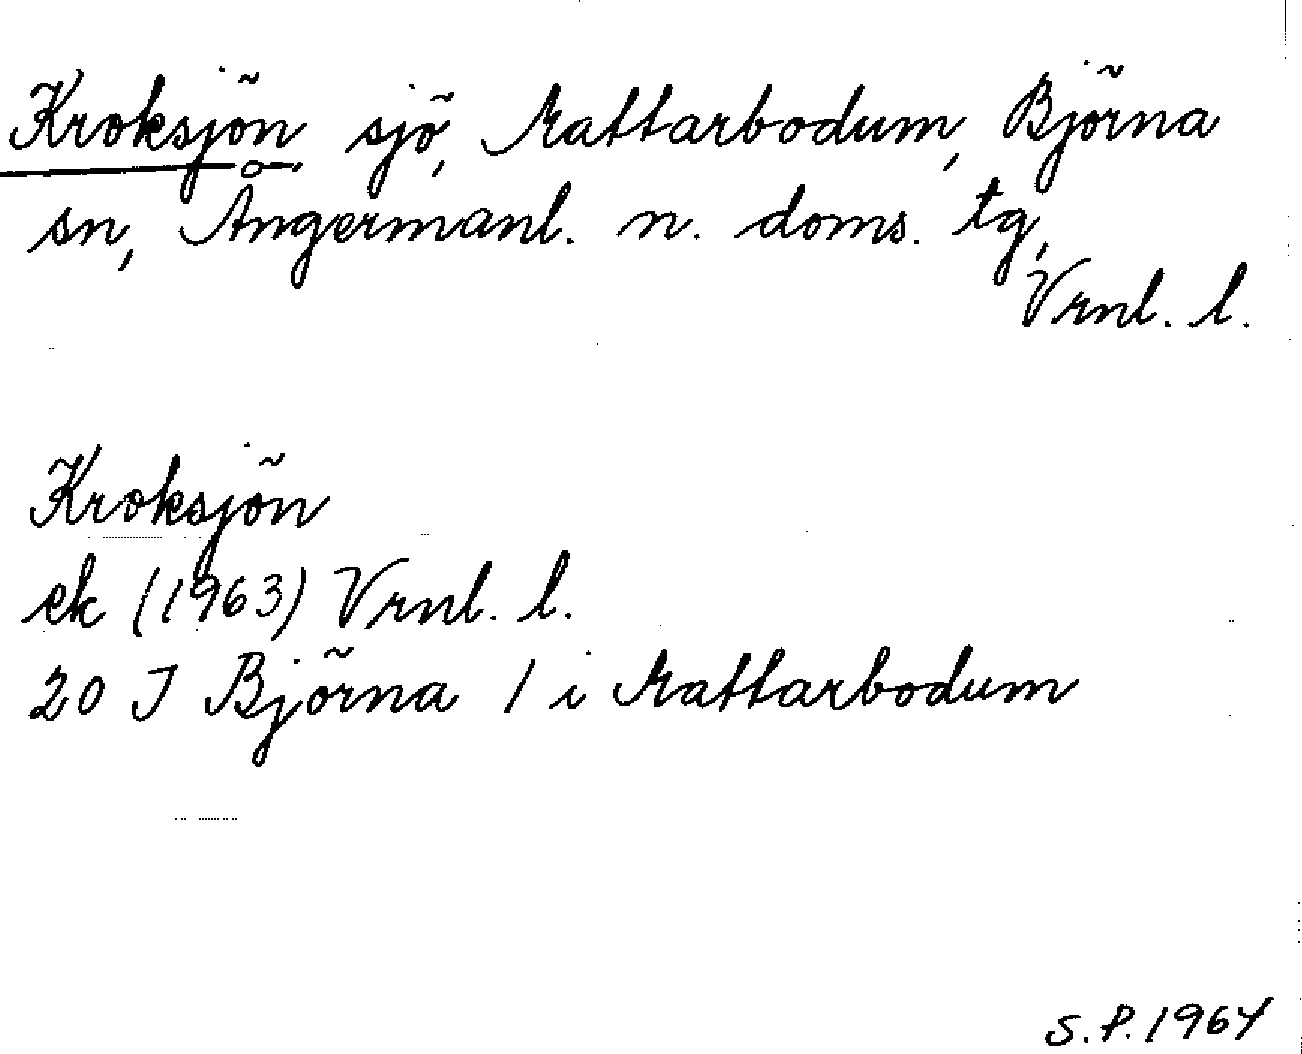 Kroksjön sjö, Nattarbodum, Björna
sn, Ångermanl. n. doms. tg,
Vrnl. l.
Kroksjön
ek (1963) Vrnl. l.
20 J Björna 1 i Nattarbodum
S.P. 1964